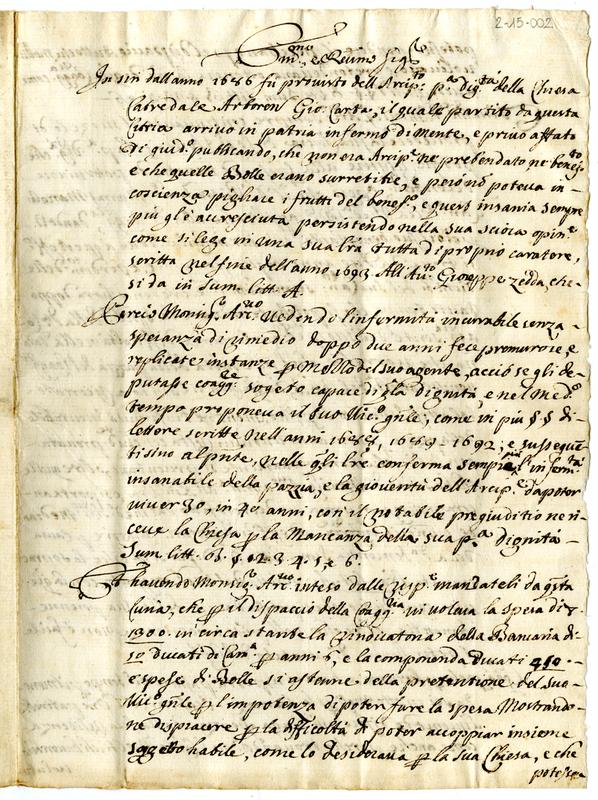 2-15-002
Em.mo e Reu.mo Sig.re
In sin dall'anno 1686 fù prouisto dell'Arcip.to p.a dig.tà della Chiesa
Catedrale Arboren Gio: Carta, il quale partito da questa
Curia arriuò in patria infermo di mente, e priuo affato
di giud.o publicando, che non era Arcip.e ne prebendato ne
e che quelle Bolle erano surretitie, e però nõ poteua in
coscienza pigliare i frutti del benef.o, e quest'insania sempre
più gl'è accresciuta persistendo nella sua opin.e
come si lege in una sua l'ra tutta di proprio caratere,
scritta nel fine dell'anno 1693 All'Au.to Gioseppe Zedda, che
si da in Sum. litt. A.
Perciò Monsig.r Arc.uo uedendo l'infermità incurabile senza
speranza di rimedio doppo due anni fece premurose, e
replicate instanze p mezzo del suo agente, acciò se gli de-
putasse coagg.re sogeto capace di dignità, e nel med.o
tempo proponeua il suo Vic.o gñle, come in più §.§ di
lettere scritte nell'anni 1689 - 1692, e susseque
tissino al pñte, nelle q̃li l're conferma sempre l'inferm.tà
insanabile della pazzia, e la giouentù dell'Arcip.e da poter
uiuer 30, in 40 anni, con il notabile pregiuditio ne ri-
ceue la Chiesa p la Mancanza della sua p.a dignità
Sum. litt. B. §. 1.2.3.4.5 e 6.
Et hauendo Monsig.r Arc.uo inteso dalle risp.e mandateli da q̃sta
Curia, che p il dispaccio della Coagg.ria ui uoleua la spesa di
1300. in circa stante la uindicatoria della Bancaria di
50 ducati di Cam.a p anni 6, e la componenda Ducati 450
e spese di Bolle si astenne della pretentione del suo
Vic.o gñle p l'impotenza di poter fare la spesa Mostrando-
ne dispiacere p la difficoltà di poter accoppiar insieme
sogetto habile, come lo desideraua p la sua Chiesa, e che
potesse